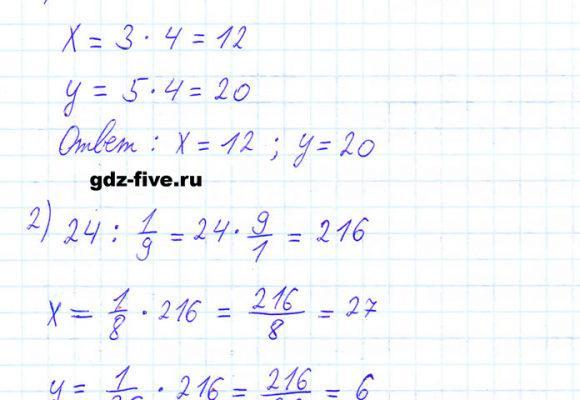 x = 3 · 4 = 12
y = 5 · 4 = 20
Ответ : x = 12 ; y = 20
gdz-five.ru
2) 24 : 1/9 = 24 · 9/1 = 216
x = 1/8 · 216 = 216/8 = 27
y = 1/36 · 216 = 216/36 = 6